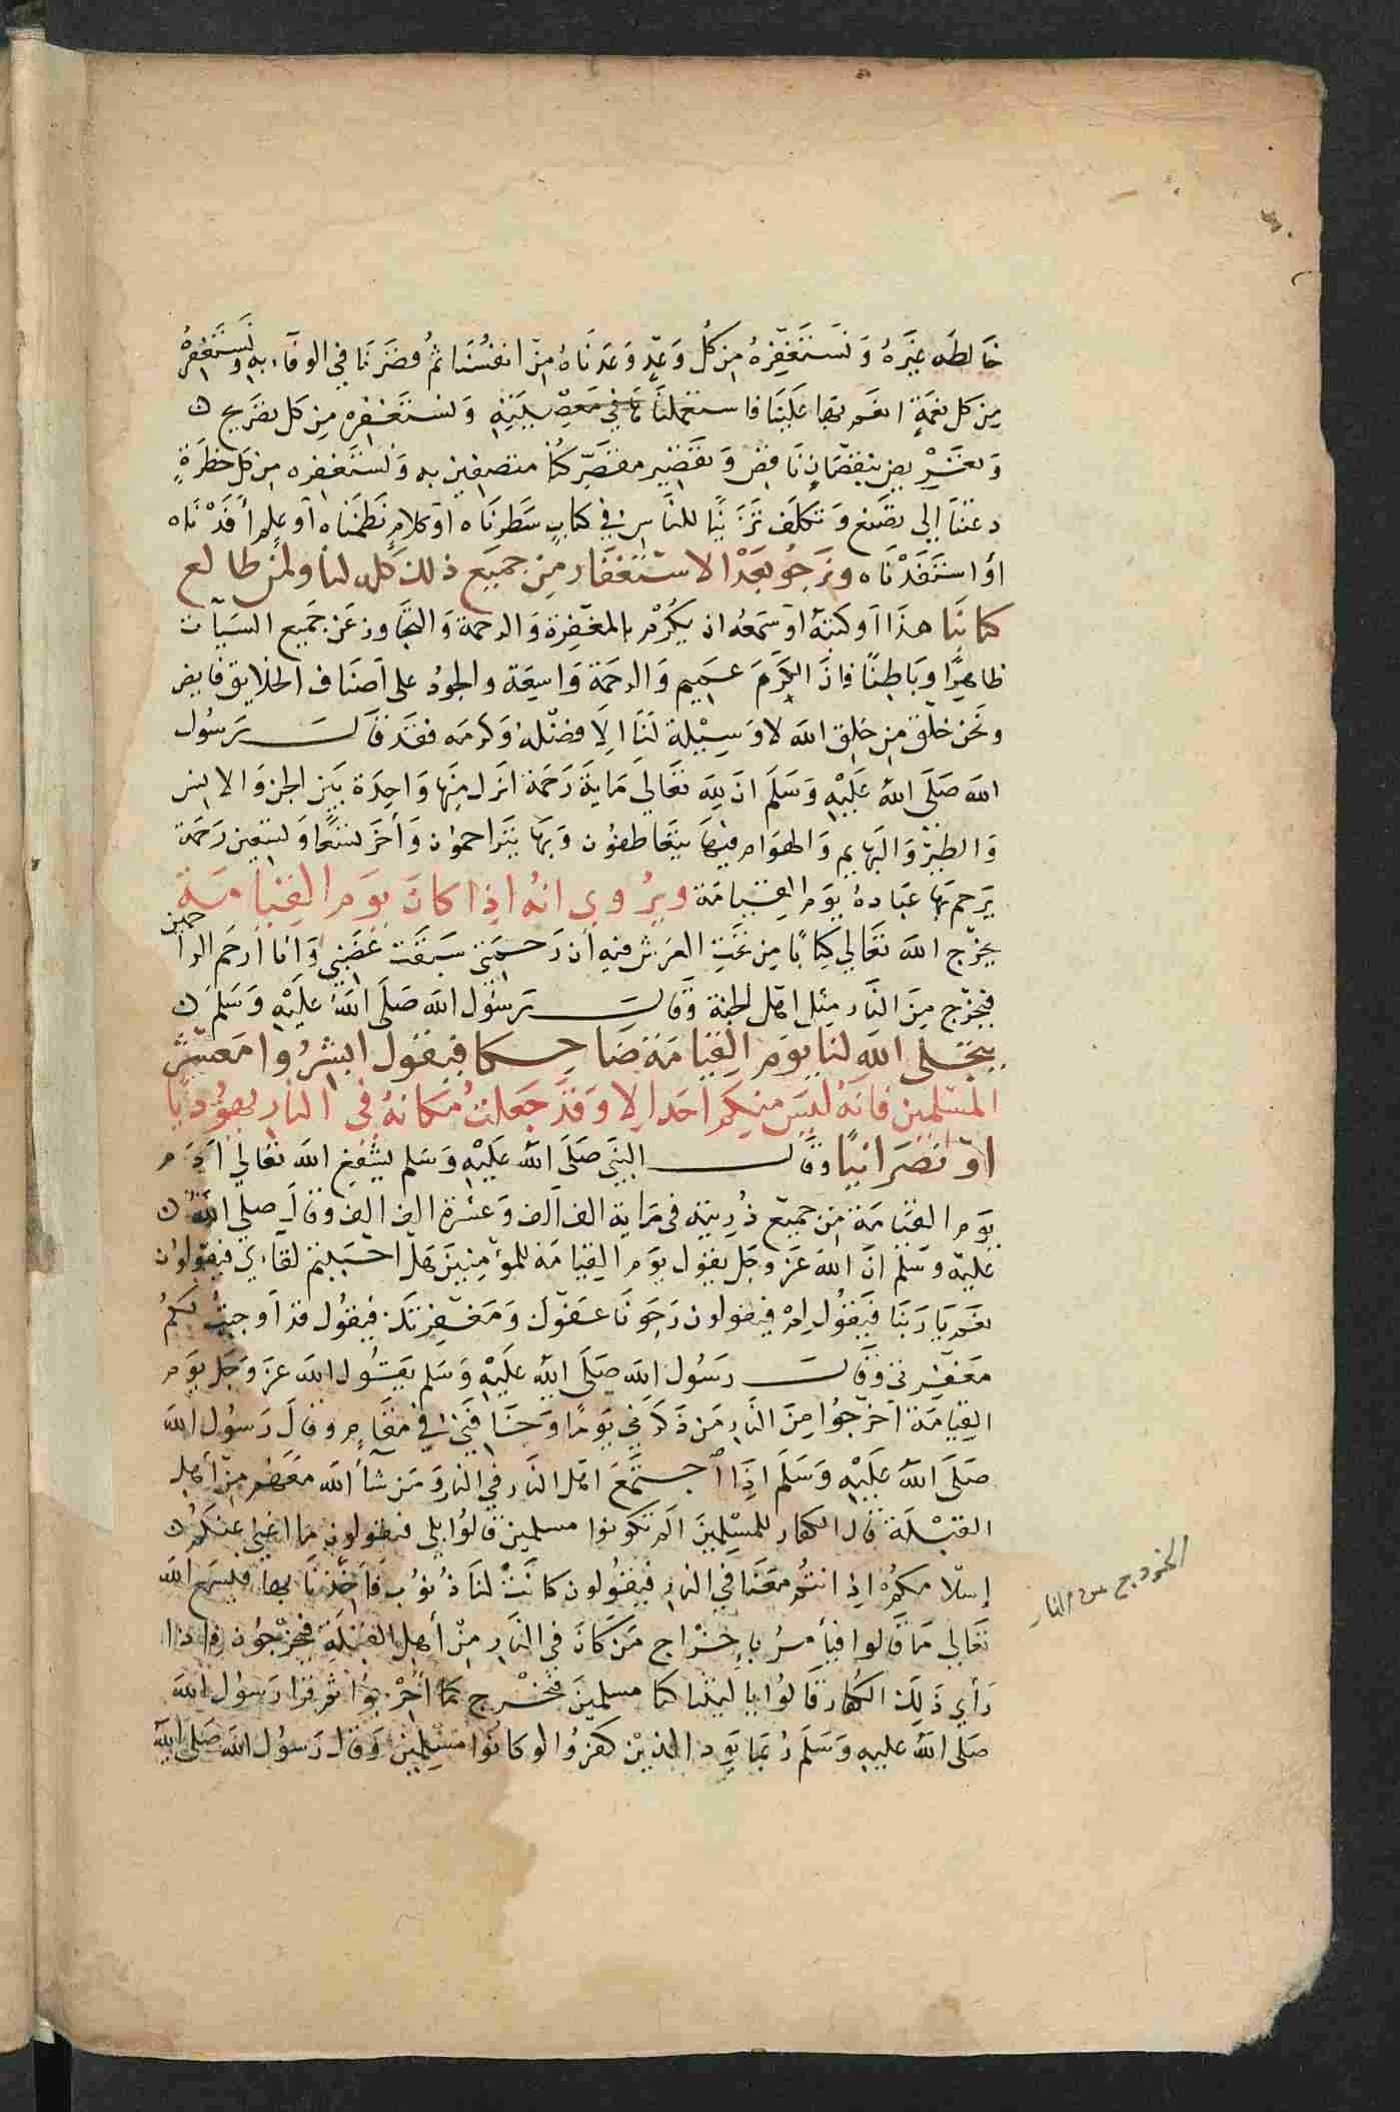 خالطه غيره ونستغفره من كل وعد وعدناه من انفسنا ثم قصرنا في الوفاء به ونستغفره
من كل نعمة انعم بها علينا فاستعملناها في معصيته ونستغفره من كل تصريح
وتعريض بنقصان ناقص وتقصير مقصر كنا متصفين به ونستغفره من كل خطرة
دعتنا الى تصنع وتكلف تزينا للناس في كتاب سطرناه او كلام نظمناه او علم أفدناه
أو استفدناه ونرجو بعد الاستغفار من جميع ذلك كله لنا ولمن طالع
كتابنا هذا او كتبه او سمعه ان يكرم بالمغفرة والرحمة والتجاوز عن جميع السيآت
ظاهرا وباطنا فان الكرم عميم والرحمة واسعة والجود على اصناف الخلايق فايض
ونحن خلق من خلق الله لا وسيلة لنا الا فضله وكرمه فقد قال رسول
الله صلى الله عليه وسلم ان لله تعالى ماية رحمة انزل منها واحدة بين الجن والانس
والطير والبهايم والهوام فبها يتعاطفون وبها يتراحمون وأخر تسعا وتسعين رحمة
يرحم بها عباده يوم القيامة ويروى انه اذا كان يوم القيامة
يخرج الله تعالى كتابا من تحت العرش فيه ان رحمتي سبقت غضبي وانا ارحم الراحمين
فيخرج من النار مثل اهل الجنة وقال رسول الله صلى الله عليه وسلم
يتجلى الله لنا يوم القيامة ضاحكا فيقول ابشروا معشر
المسلمين فانه ليس منكم احد الا وقد جعلت مكانه في النار يهوديا
او نصرانيا وقال النبي صلى الله عليه وسلم يشفع الله تعالى ادم
يوم القيامة من جميع ذريته في ماية الف الف وعشرة الف الف وقال صلى الله
عليه وسلم ان الله عز وجل يقول يوم القيامة للمؤمنين هل احببتم لقاءي فيقولون
نعم يا ربنا فيقول لم فيقولون رجونا عفوك ومغفرتك فيقول قد اوجبت لكم
مغفرتي وقال رسول الله صلى الله عليه وسلم يقول الله عز وجل يوم
القيامة اخرجوا من النار من ذكرني يوما وخافني في مقام وقال رسول الله
صلى الله عليه وسلم اذا اجتمع اهل النار في النار ومن شاء الله معهم من أهل
القبلة قال الكفار للمسلمين الم تكونوا مسلمين قالوا بلى فيقولون ما اغنى عنكم
إسلامكم اذ انتم معنا في النار فيقولون كانت لنا ذنوب فاخذنا بها فيسمع الله
تعالى ما قالوا فيأمر باخراج من كان في النار من أهل القبلة فيخرجون فاذا
رأى ذلك الكفار قالوا يا ليتنا كنا مسلمين فنخرج كما أخرجوا ثم قرا رسول الله
صلى الله عليه وسلم ربما يود الذين كفروا لو كانوا مسلمين وقال رسول الله صلى الله
الخروج من النار